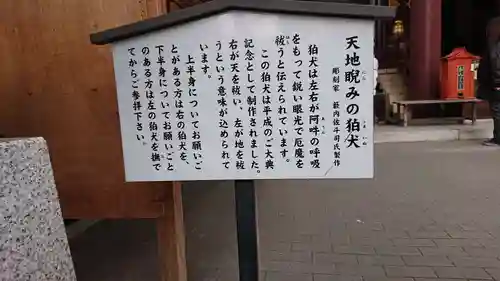 天地睨みの狛犬
彫刻家　藪内佐斗司氏製作
狛犬は左右が阿吽の呼吸
をもって鋭い眼光で厄魔を
祓うと伝えられています。
この狛犬は平成のご大典
記念として制作されました。
右が天を祓い、左が地を祓
うという意味が込められて
います。
上半身についてお願いご
とがある方は右の狛犬を、
下半身についてお願いごと
のある方は左の狛犬を撫で
てからご参拝下さい。